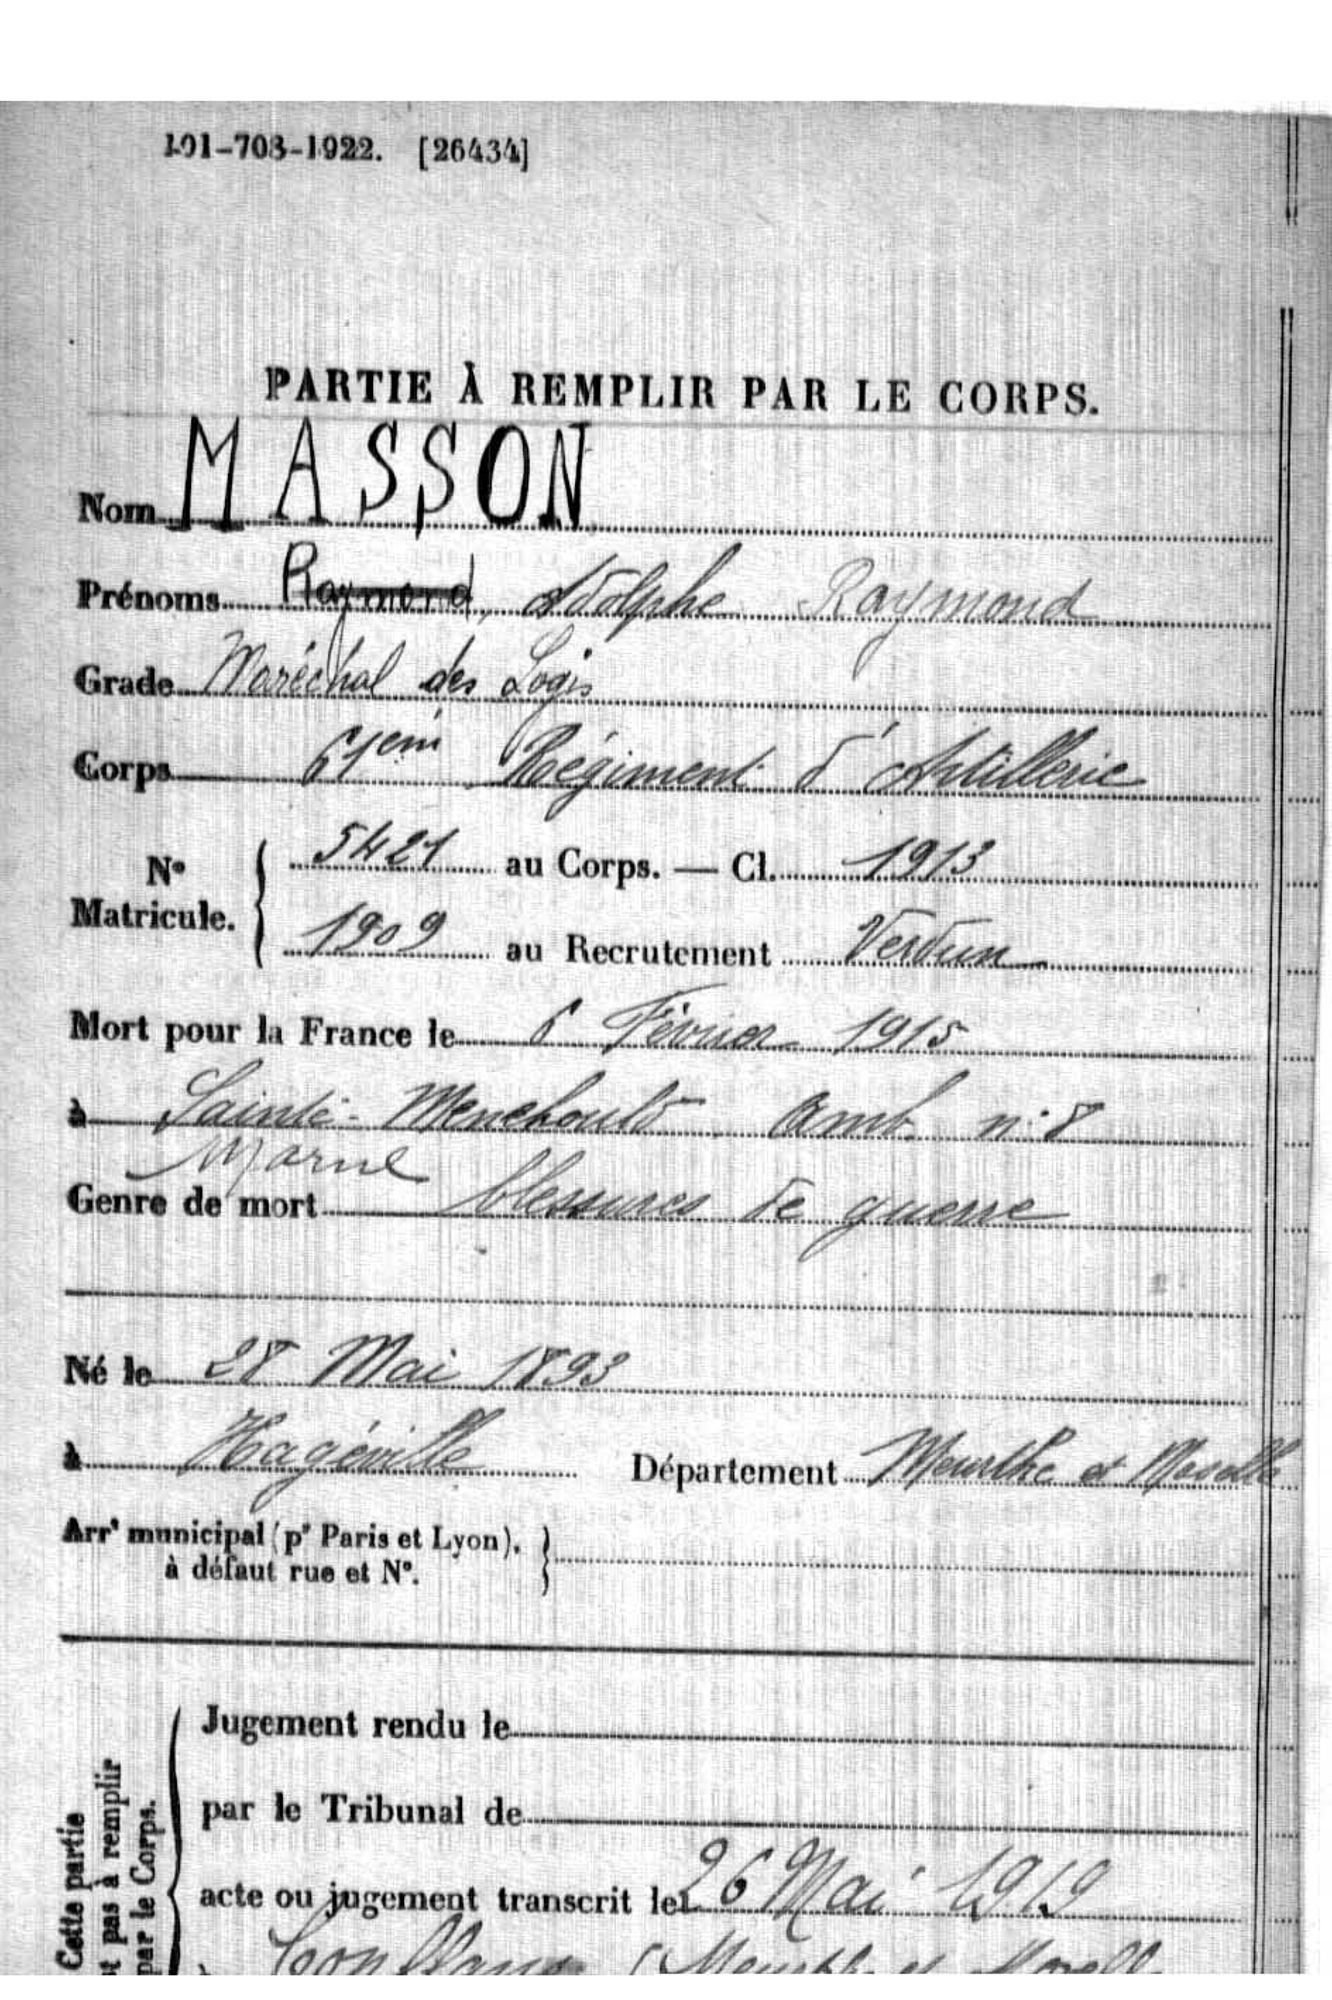 101-708-1922. [26434]
PARTIE À REMPLIR PAR LE CORPS.
Nom MASSON
Prénoms Raymond, Adolphe Raymond
Grade Maréchal des Logis
Corps 61ème Régiment d'Artillerie
N° Matricule. { 5421 au Corps. — Cl. 1913
1909 au Recrutement Verdun
Mort pour la France le 6 Février 1915
à Sainte-Menehould Amb. n° 8
Marne
Genre de mort blessures de guerre
Né le 28 Mai 1893
à Hagéville Département Meurthe et Moselle
Arrt municipal (pr Paris et Lyon), }
à défaut rue et N°.
Jugement rendu le
par le Tribunal de
acte ou jugement transcrit le 26 Mai 1919
Conflans (Meurthe et Moselle
Cette partie
t pas à remplir
par le Corps.